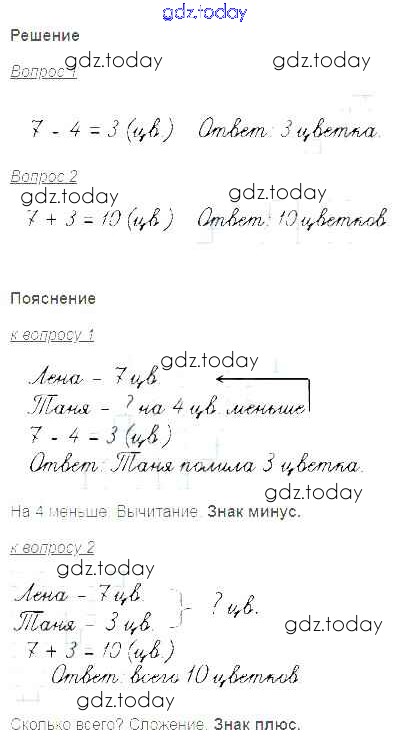 gdz.today
Решение
Вопрос 1 gdz.today gdz.today
7 - 4 = 3 (цв.) Ответ: 3 цветка.
Вопрос 2
gdz.today gdz.today
7 + 3 = 10 (цв.) Ответ: 10 цветков
Пояснение
к вопросу 1
gdz.today
Лена - 7 цв.
Таня - ? на 4 цв. меньше
7 - 4 = 3 (цв.)
Ответ: Таня полила 3 цветка.
gdz.today
На 4 меньше. Вычитание. Знак минус.
к вопросу 2
gdz.today
Лена - 7 цв.
Таня - 3 цв. } ? цв.
gdz.today
7 + 3 = 10 (цв.)
Ответ: всего 10 цветков
gdz.today
Сколько всего? Сложение. Знак плюс.